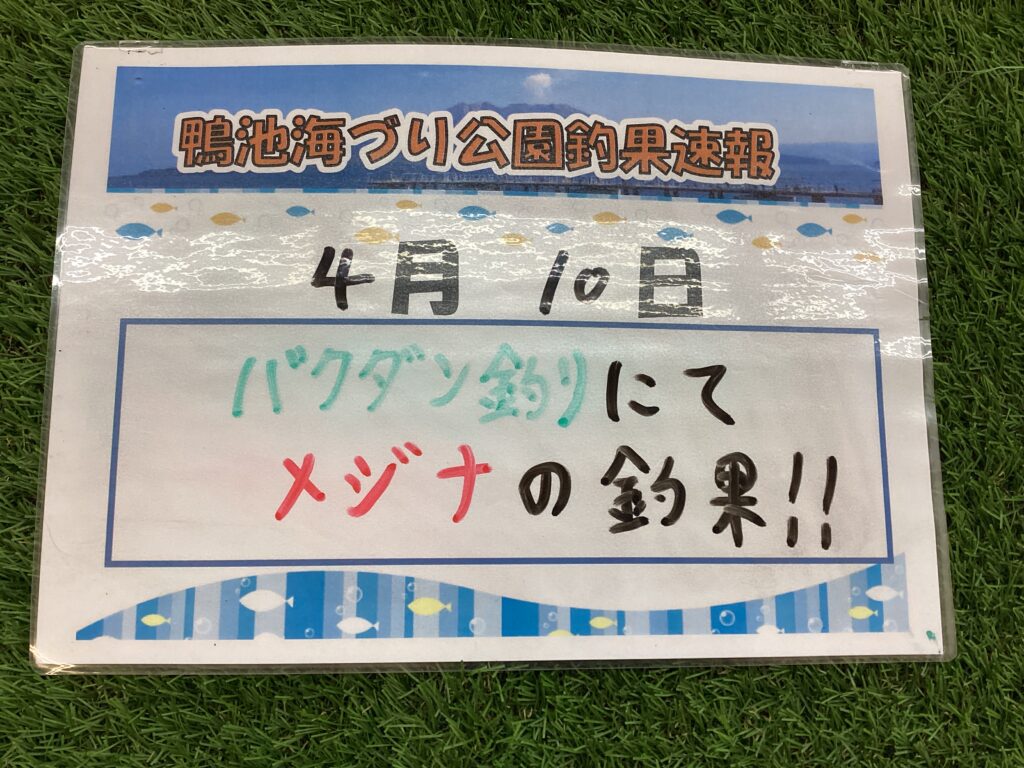 鴨池海づり公園釣果速報
4月 10日
バクダン釣りにて
メジナの釣果!!